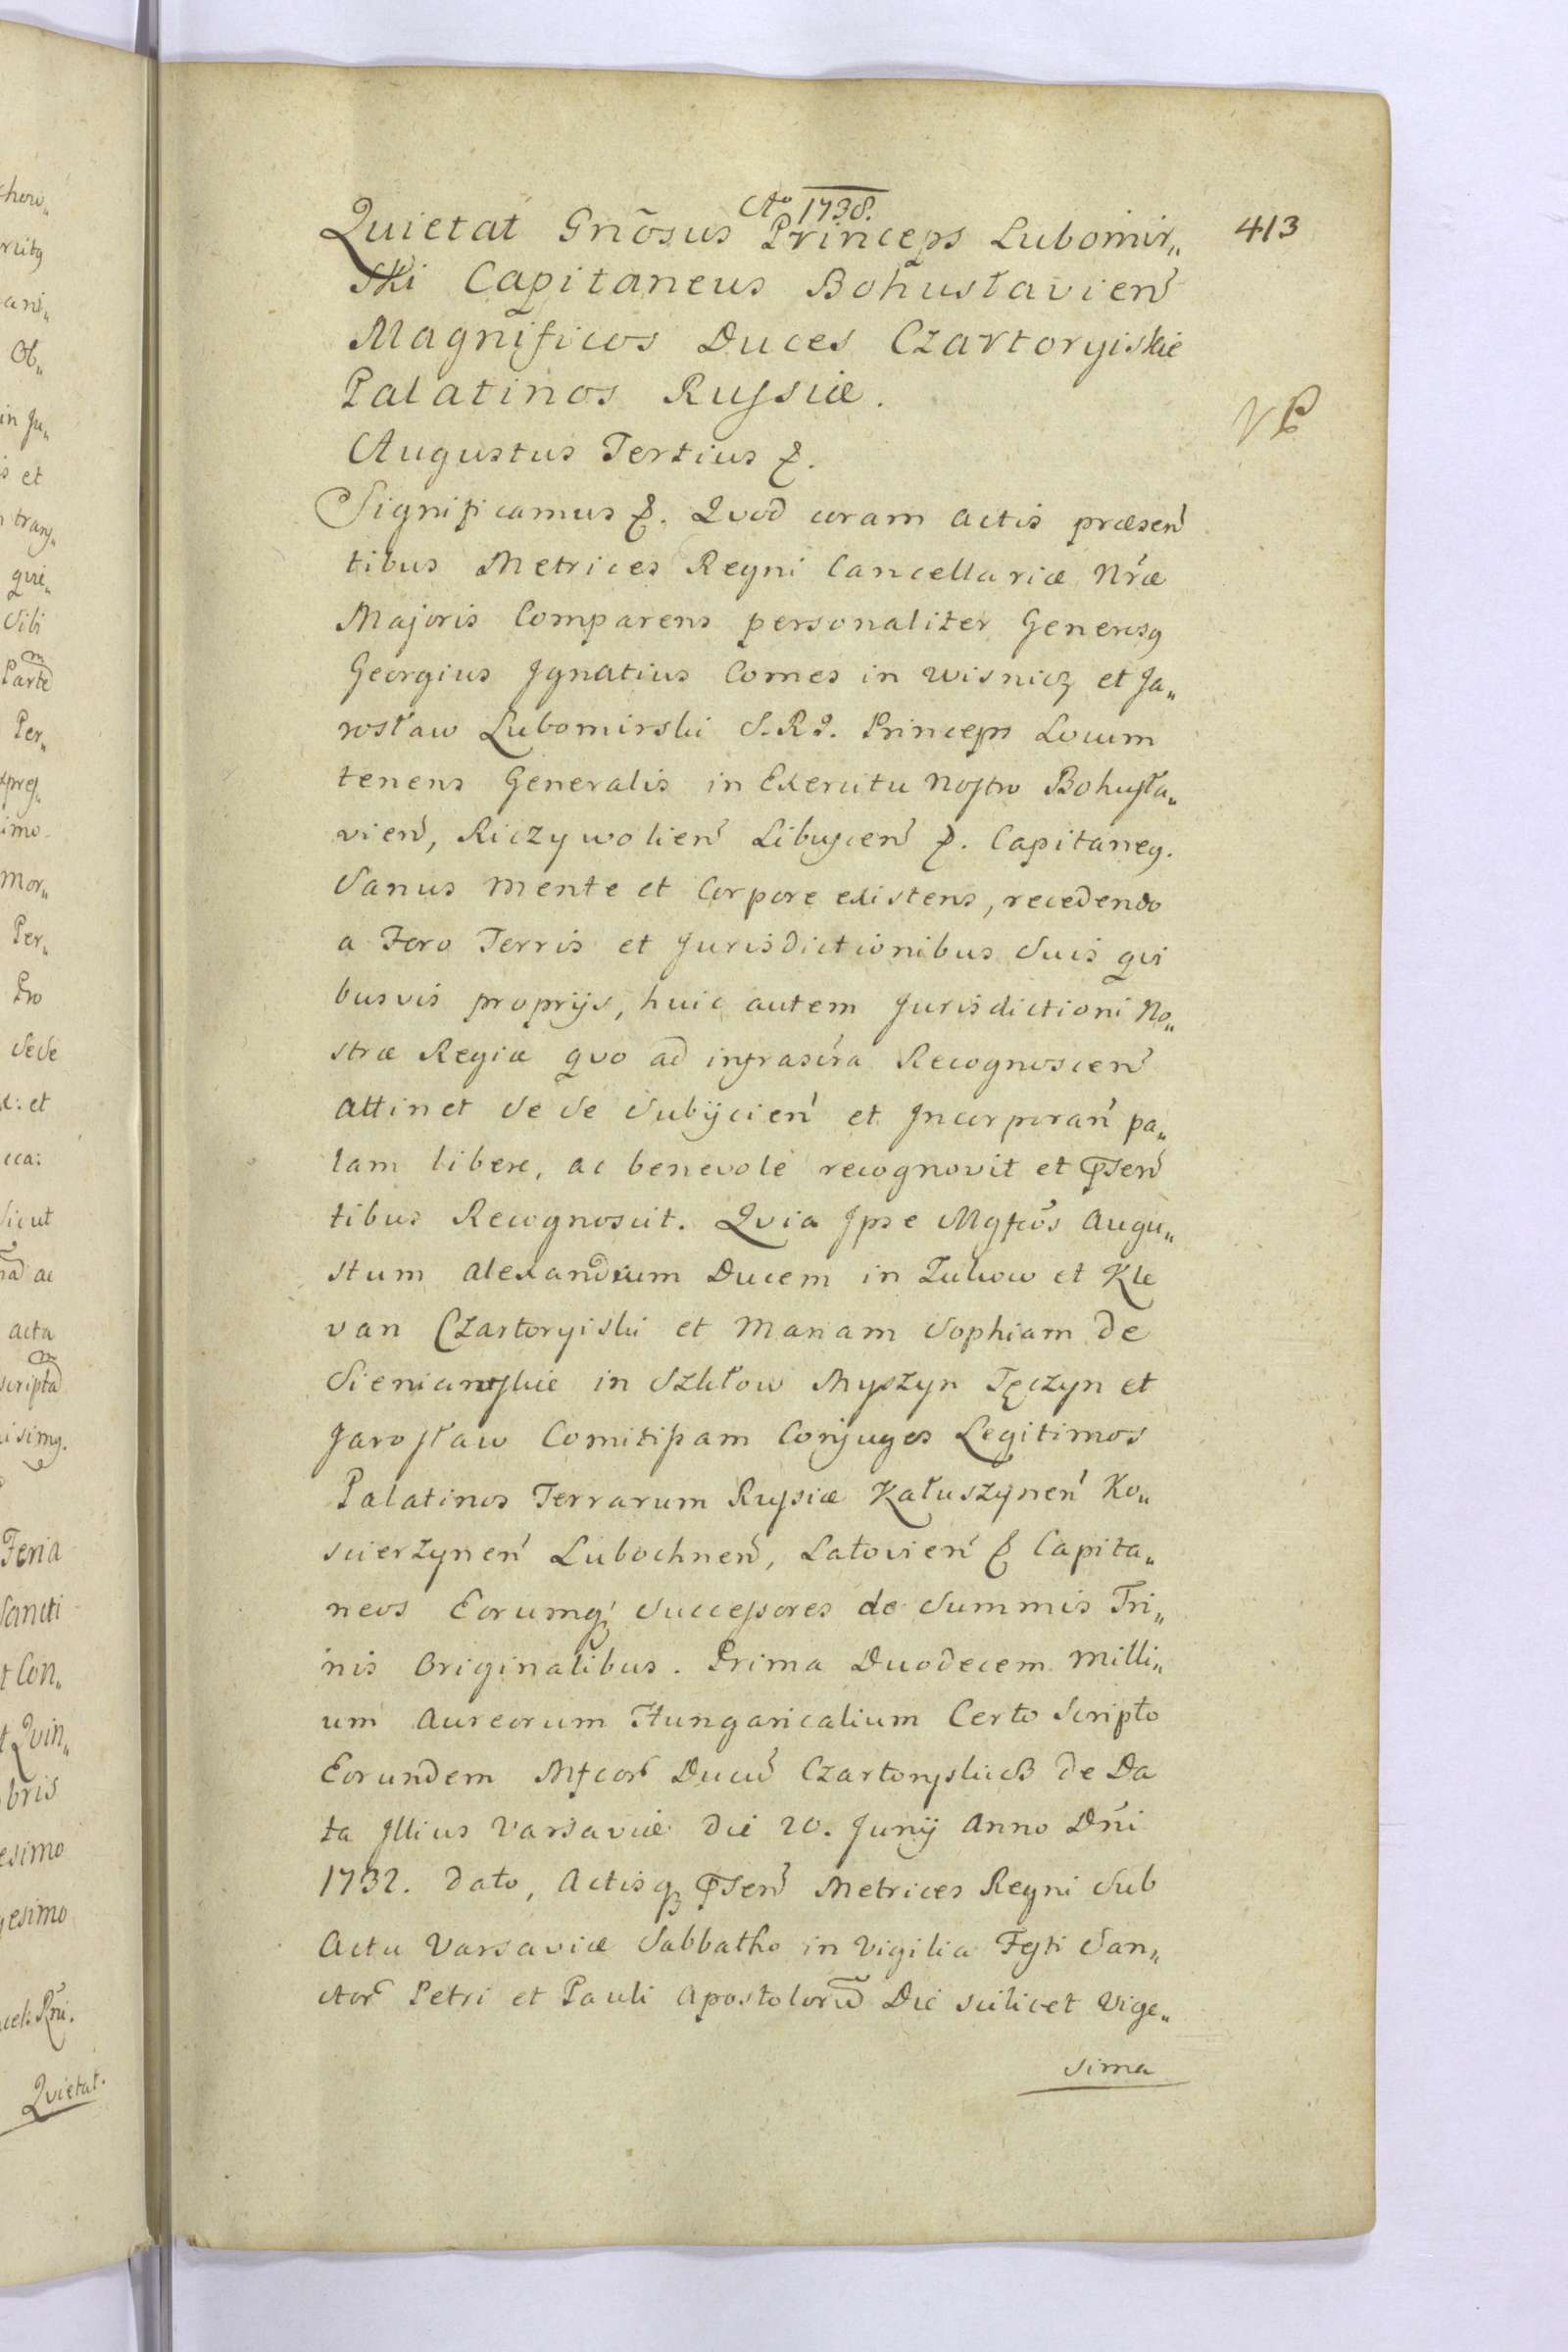 Ao 1738.
413
Quietat Gnõsus Princeps Lubomir„
ski Capitaneus Bohusłavien
Magnificos Duces Czartoryiskie
Palatinos Russiæ.
Augustus Tertius &.
Significamus &. Quod coram actis præsen
tibus Metrices Regni Cancellariæ Nræ
Majoris Comparens personaliter Generosq
Georgius Ignatius Comes in Wisnicz et Ja„
rosław Lubomirski S.R.I. Princeps Locum
tenens Generalis in Exercitu Nostro Bohusła„
vien, Riczywolien Libuscen &. Capitaneq.
Sanus mente et Corpore existens, recedendo
a Foro Terris et Jurisdictionibus Suis qui
busvis proprijs, huic autem Jurisdictioni No„
stræ Regiæ quo ad infrascra Recognoscen
attinet Se Se Subijcien et Incorporan pa„
lam libere, ac benevole recognovit et Psen
tibus Recognoscit. Quia Ipse Mgfcos Augu„
stum Alexandrum Ducem in Zukow et Kle
van Czartoryiski et Mariam Sophiam de
Sieniawskie in Szkłow Myszyn Tęczyn et
Jarosław Comitissam Conjuges Legitimos
Palatinos Terrarum Russiæ Kałuszynen Ko„
scierzynen Lubochnen, Latovien & Capita„
neos Eorumq; Successores de Summis Tri„
nis Originalibus. Prima Duodecem Milli„
um Aureorum Hungaricalium Certo Scripto
Eorundem Mfcor Ducu Czartoryskich de Da
ta Illius Varsaviæ die 20. Junij Anno Dni
1732. dato, Actisq; Psen Metrices Regni Sub
Actu Varsaviæ Sabbatho in Vigilia Festi San„
ctor Petri et Pauli Apostoloru Die scilicet Vige„
sima